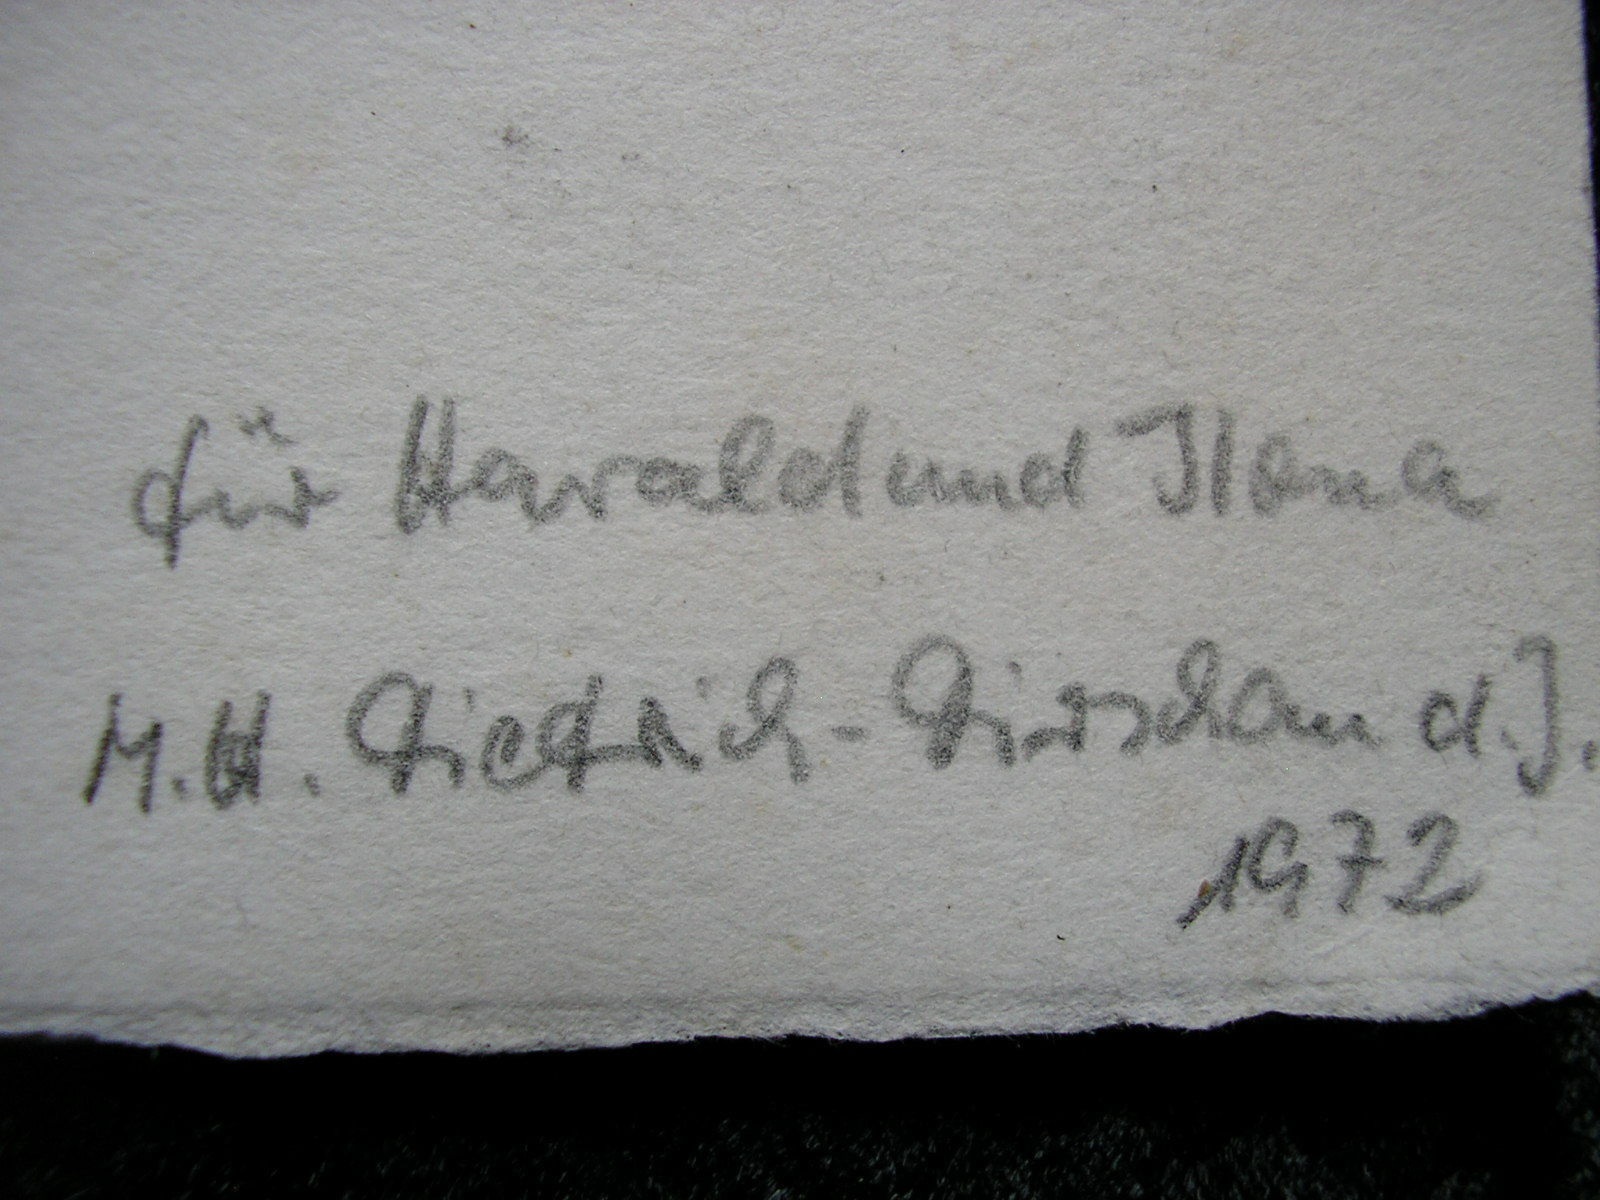 für Harald und Ilona
M.H. Dietrich-Dirschau d.J.
1972